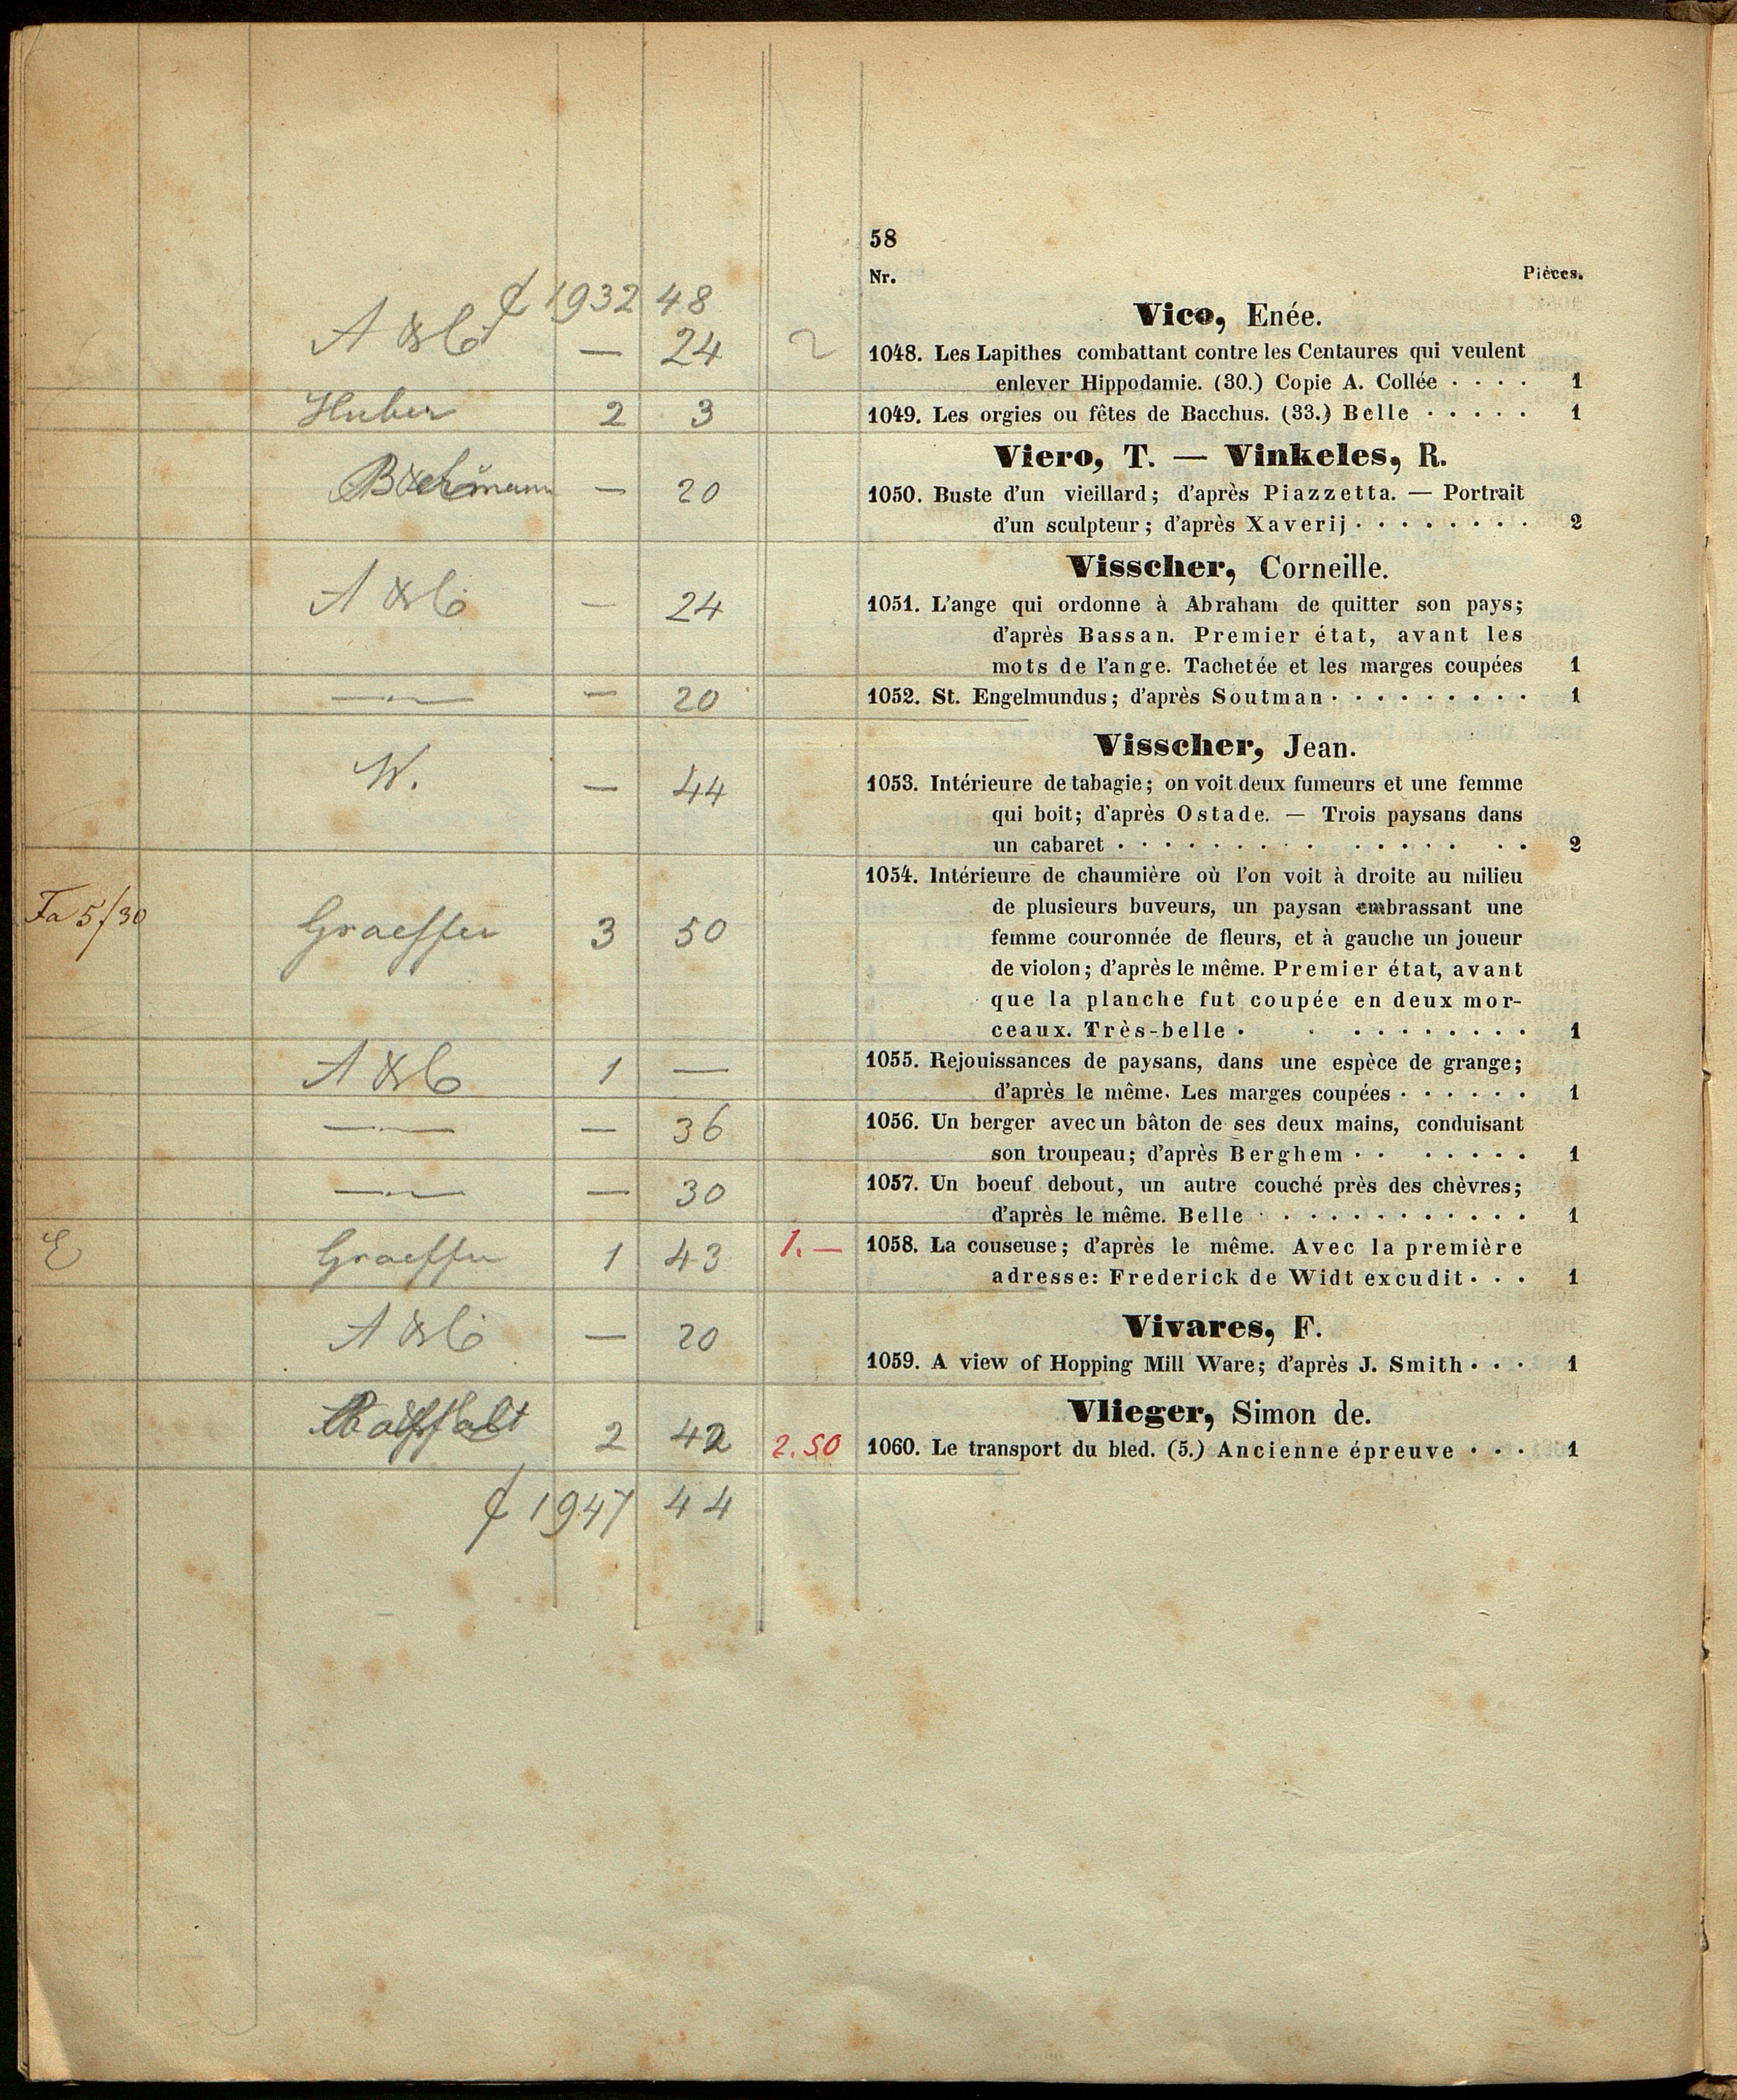 58
Nr. Pièces.
1932 48
Vico, Enée.
A & C — 24 1048. Les Lapithes combattant contre les Centaures qui veulent
enlever Hippodamie. (30.) Copie A. Collée · · · · 1
Huber 2 3 1049. Les orgies ou fêtes de Bacchus. (33.) Belle · · · · · 1
Viero, T. — Vinkeles, R.
— 20 1050. Buste d'un vieillard; d'après Piazzetta. — Portrait
d'un sculpteur; d'après Xaverij · · · · · · · · 2
Visscher, Corneille.
A & C — 24 1051. L'ange qui ordonne à Abraham de quitter son pays;
d'après Bassan. Premier état, avant les
mots de l'ange. Tachetée et les marges coupées 1
—"— — 20 1052. St. Engelmundus; d'après Soutman · · · · · · · · · 1
Visscher, Jean.
W. — 44 1053. Intérieure de tabagie; on voit deux fumeurs et une femme
qui boit; d'après Ostade. — Trois paysans dans
un cabaret · · · · · · · · · · · · · · 2
1054. Intérieure de chaumière où l'on voit à droite au milieu
Fa 5/30 Graeffer 3 50 de plusieurs buveurs, un paysan embrassant une
femme couronnée de fleurs, et à gauche un joueur
de violon; d'après le même. Premier état, avant
que la planche fut coupée en deux mor-
ceaux. Très-belle · · · · · · · · · · 1
A & C 1 — 1055. Rejouissances de paysans, dans une espèce de grange;
d'après le même. Les marges coupées · · · · · · 1
—"— — 36 1056. Un berger avec un bâton de ses deux mains, conduisant
son troupeau; d'après Berghem · · · · · · · 1
—"— — 30 1057. Un boeuf debout, un autre couché près des chèvres;
d'après le même. Belle · · · · · · · · · · · · 1
E Graeffer 1 43 1.— 1058. La couseuse; d'après le même. Avec la première
adresse: Frederick de Widt excudit · · · 1
Vivares, F.
A & C — 20 1059. A view of Hopping Mill Ware; d'après J. Smith · · · 1
Vlieger, Simon de.
2 42 2.50 1060. Le transport du bled. (5.) Ancienne épreuve · · · 1
1947 44